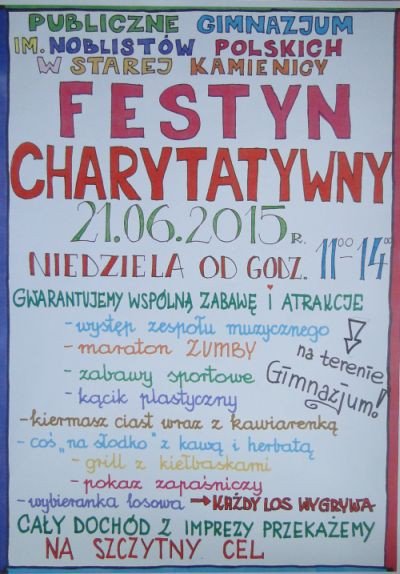 PUBLICZNE GIMNAZJUM
IM. NOBLISTÓW POLSKICH
W STAREJ KAMIENICY
FESTYN
CHARYTATYWNY
21.06.2015 R.
NIEDZIELA OD GODZ. 11⁰⁰-14⁰⁰
GWARANTUJEMY WSPÓLNĄ ZABAWĘ I ATRAKCJE
- występ zespołu muzycznego
- maraton ZUMBY
- zabawy sportowe
- kącik plastyczny
na terenie
Gimnazjum!
- kiermasz ciast wraz z kawiarenką
- coś „na słodko" z kawą i herbatą
- grill z kiełbaskami
- pokaz zapaśniczy
- wybieranka losowa → KAŻDY LOS WYGRYWA
CAŁY DOCHÓD Z IMPREZY PRZEKAŻEMY
NA SZCZYTNY CEL